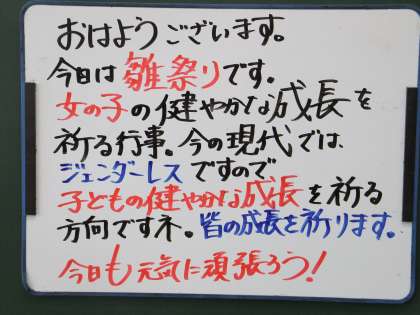 おはようございます。
今日は雛祭りです。
女の子の健やかな成長を
祈る行事。今の現代では、
ジェンダーレスですので
子どもの健やかな成長を祈る
方向ですネ。皆の成長を祈ります。
今日も元気に頑張ろう!